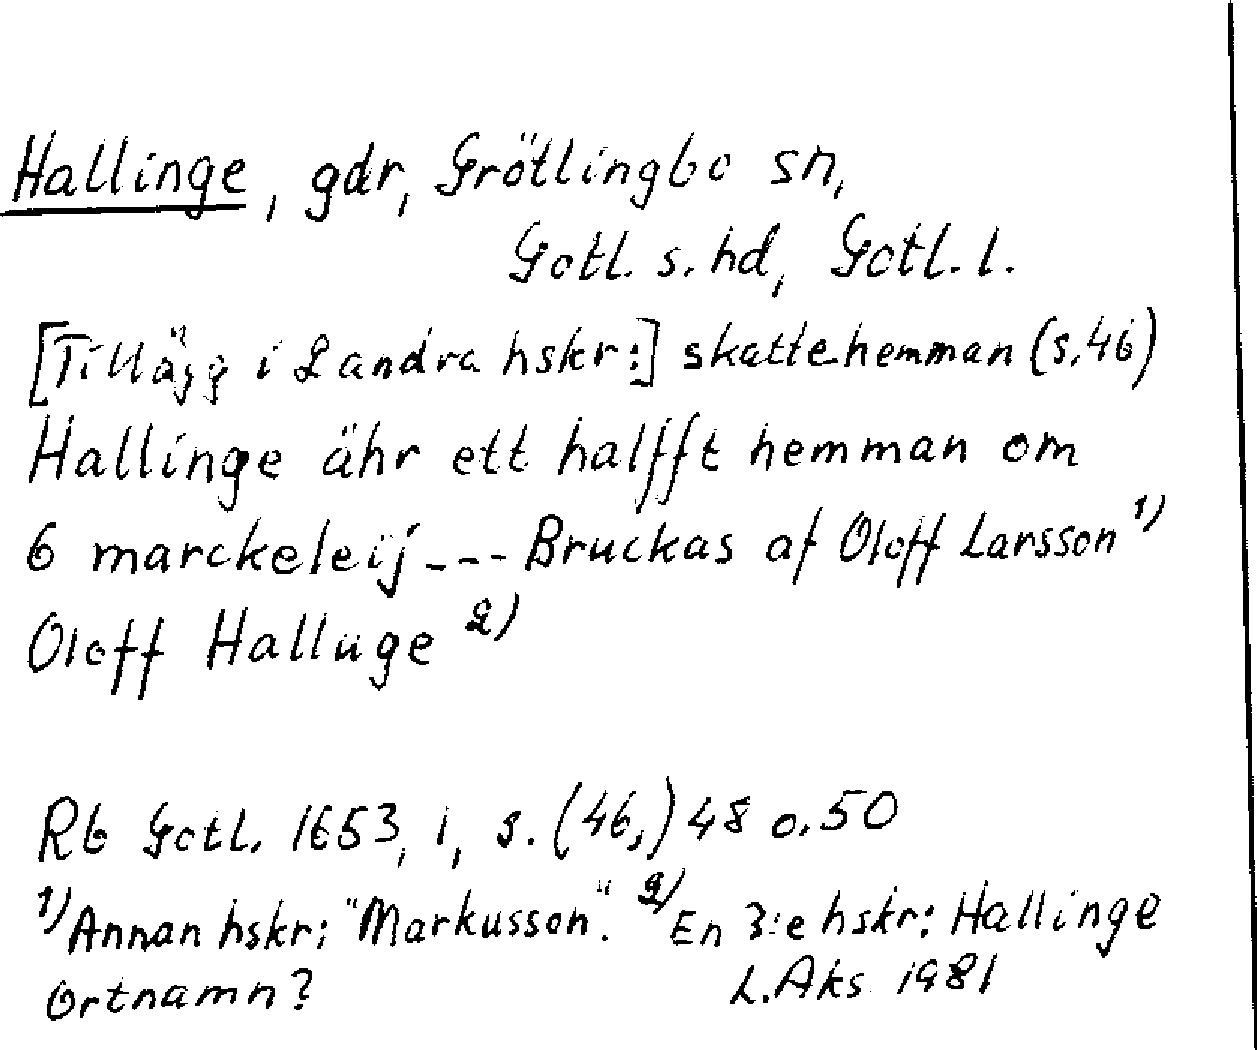 Hallinge, gdr, Grötlingbo sn,
Gotl. s. hd, Gotl. l.
[Tillägg i 2 andra hskr:] skattehemman (s. 46)
Hallinge ähr ett halfft hemman om
6 marckeleij --- Bruckas af Oloff Larsson 1)
Oloff Halluge 2)
Rb Gotl. 1653, 1, s. (46,) 48 o. 50
1) Annan hskr: "Markusson". 2) En 3:e hskr: Hallinge
Ortnamn?
L. Aks 1981